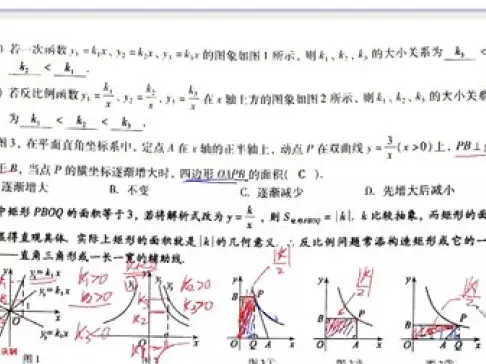 ) 若一次函数 y₁=k₁x、y₂=k₂x、y₃=k₃x 的图象如图1所示, 则 k₁、k₂、k₃ 的大小关系为 k₃ <
k₂ < k₁ .
) 若反比例函数 y₁=k₁/x、y₂=k₂/x、y₃=k₃/x 在 x 轴上方的图象如图2所示, 则 k₁、k₂、k₃ 的大小关系
为 k₁ < k₂ < k₃ .
图3, 在平面直角坐标系中, 定点 A 在 x 轴的正半轴上, 动点 P 在双曲线 y=3/x (x>0)上, PB⊥
于 B, 当点 P 的横坐标逐渐增大时, 四边形 OAPB 的面积( C ).
逐渐增大 B. 不变 C. 逐渐减少 D. 先增大后减小
中矩形 PBOQ 的面积等于3, 若将解析式改为 y=k/x, 则 S矩形PBOQ=|k|, k 比较抽象, 而矩形的面
显得直观具体. 实际上矩形的面积就是 |k| 的几何意义. ∴反比例问题常添构造矩形或它的一
——直角三角形或一长一宽的辅助线.
y₁=k₁x k₁>0 k₂>0 k₃>0 |k|/2
y₃=k₃x k₃<0
图1